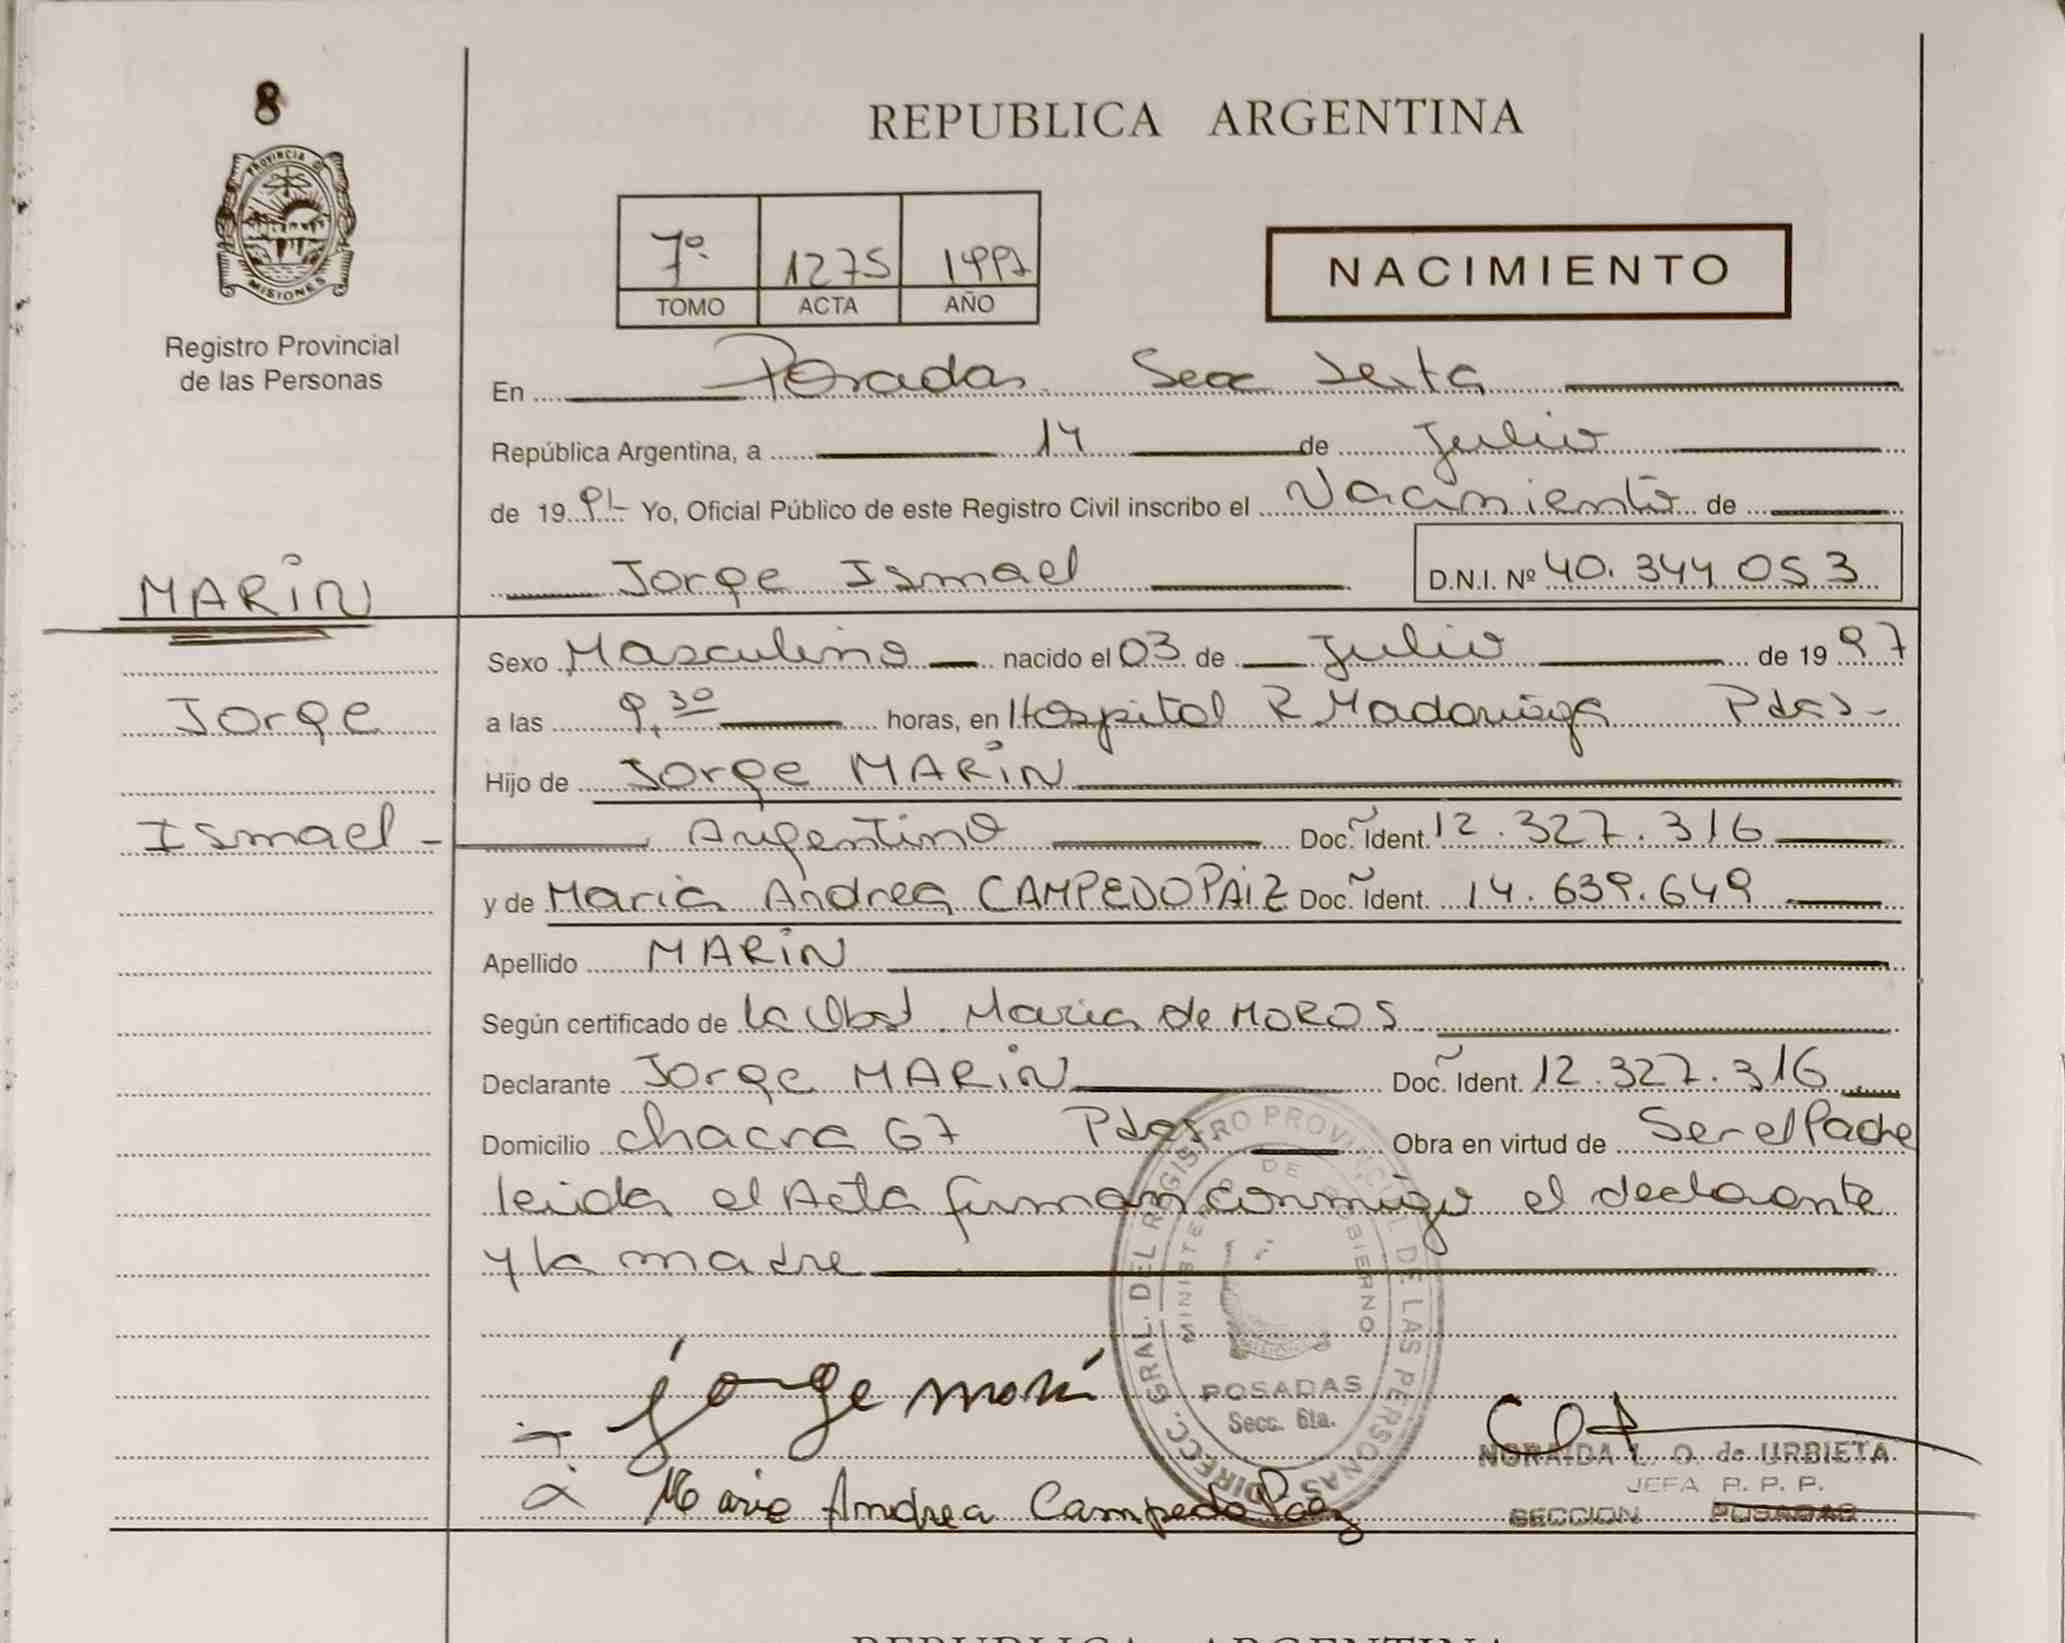 8
PROVINCIA DE
MISIONES
Registro Provincial
de las Personas
MARÍN
Jorge
Ismael -
REPUBLICA ARGENTINA
7º 1275 1997
TOMO ACTA AÑO
NACIMIENTO
En Posadas Secc Sexta
República Argentina, a 14 de Julio
de 19 97 Yo, Oficial Público de este Registro Civil inscribo el Nacimiento de
Jorge Ismael D.N.I. Nº 40.344 053
Sexo Masculino nacido el 03 de Julio de 19 97
a las 9,30 horas, en Hospital R Madariaga Pdas-
Hijo de Jorge MARÍN
Argentino Doc. Ident. 12.327.316
y de Maria Andrea CAMPEDOPAIZ Doc. Ident. 14.639.649
Apellido MARÍN
Según certificado de la Obst. Maria de MOROS
Declarante Jorge MARÍN Doc. Ident. 12.327.316
Domicilio chacra 67 Pdas Obra en virtud de Ser el Padre
leida el Acta firman conmigo el declarante
y la madre
DIRECC. GRAL. DEL REGISTRO PROVINCIAL DE LAS PERSONAS
MINISTERIO DE GOBIERNO
POSADAS
Secc. 6ta.
Jorge Marín
Maria Andrea Campedo Paez
NORAIDA L. O. de URBIETA
JEFA R. P. P.
SECCION POSADAS
REPUBLICA ARGENTINA